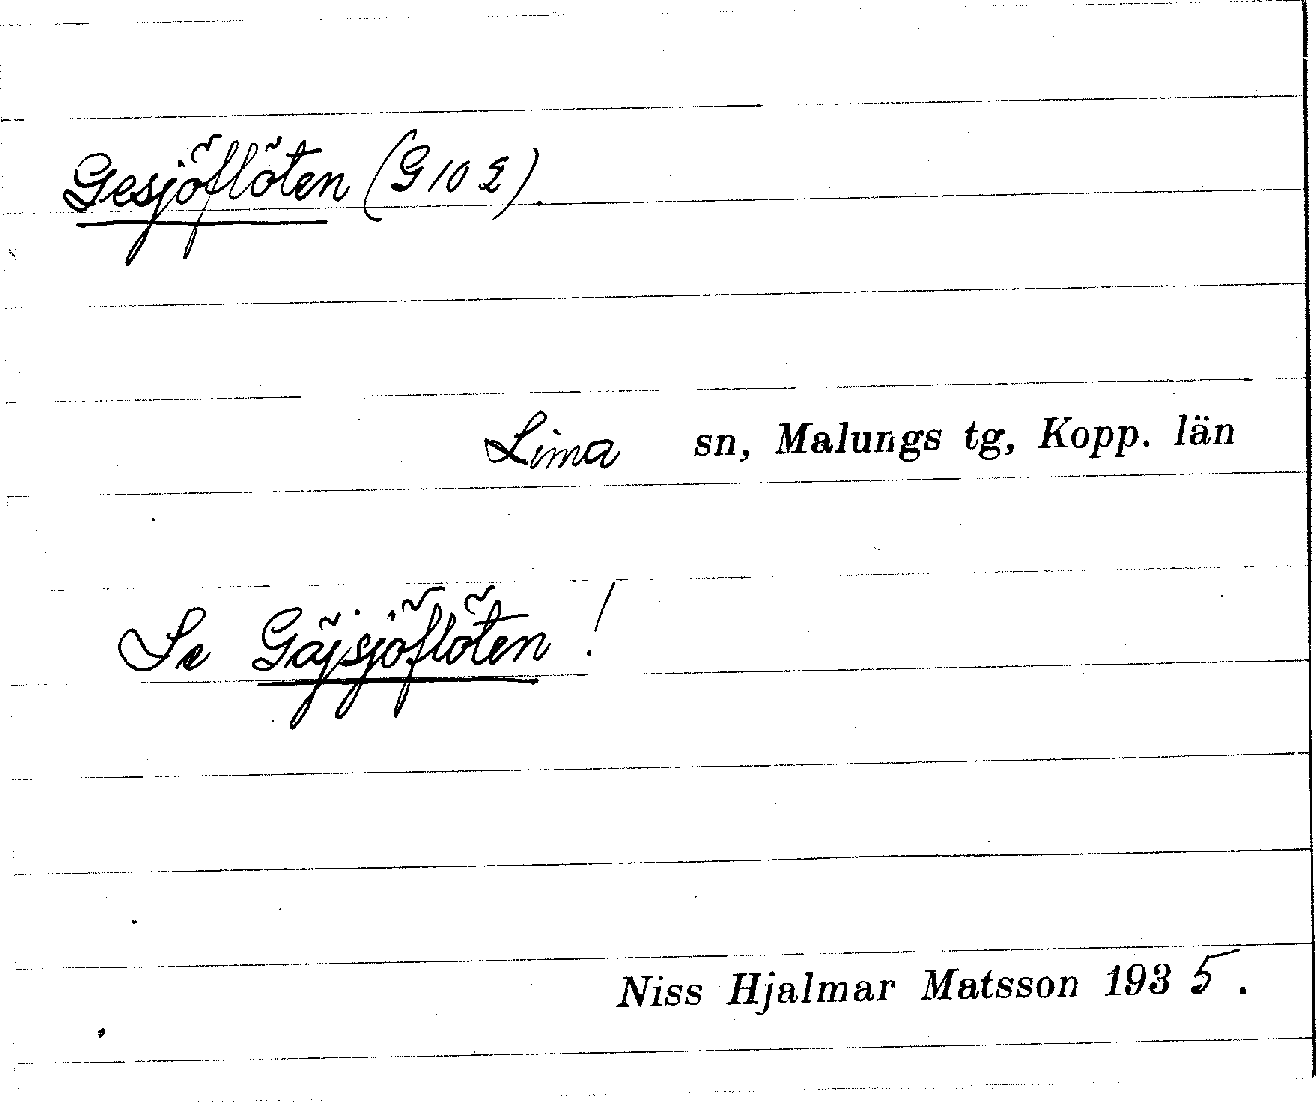 Gesjöflöten (G 10 2).
Lima sn, Malungs tg, Kopp. län
Se Gäjsjöflöten!
Niss Hjalmar Matsson 1935.